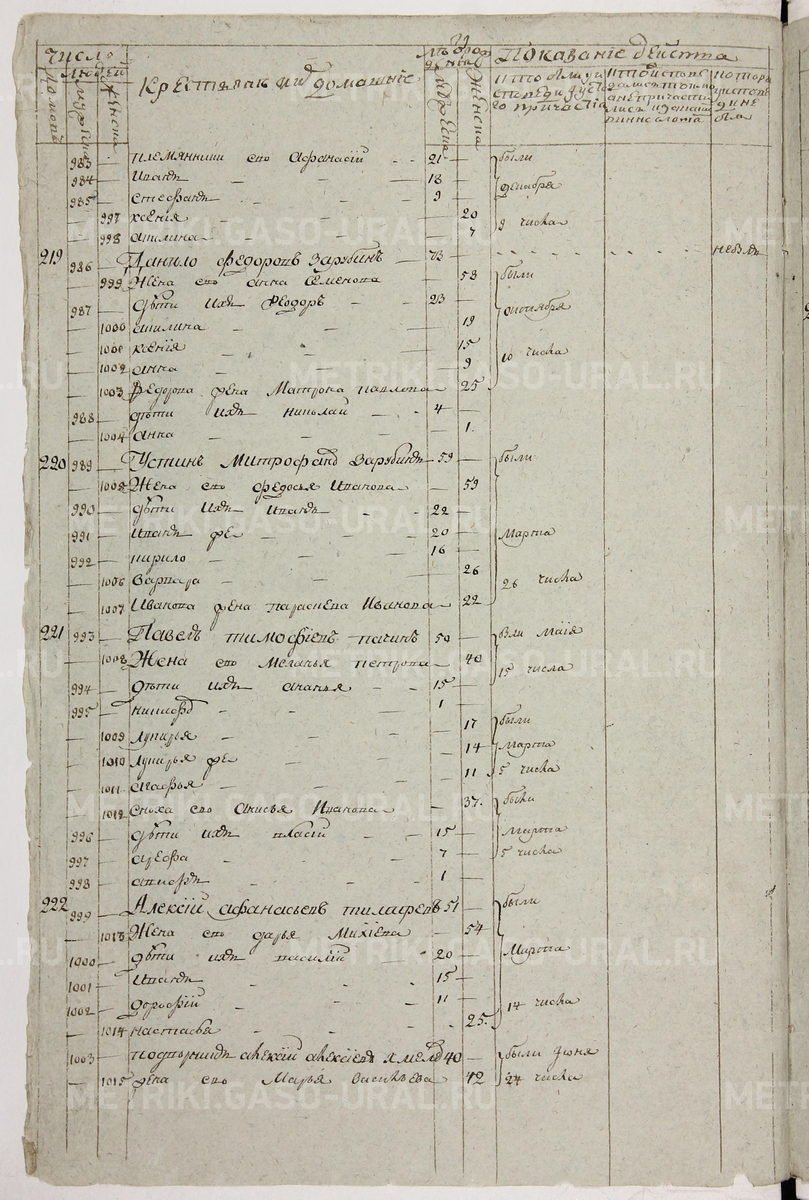 Число
людей
Домовъ
Мужеска
Женска
Крестьяне и их домашніе
Мужеска
Женска
Показаніе действа
983 племянники ево Афанасій 21 были
984 Иванъ 18 декабря
985 Стефанъ 9
997 ксенія 20 9 числа
998 акилина 7
219 986 Данило Федоровъ Зарубинъ 73
999 Жена ево анна Семенова 58 были
987 дѣти ихъ Феодоръ 23 октября
1000 акилина 19
1001 ксенія 15 10 числа
1002 анна 9
1003 Федорова жена Матрона павлова 25
988 дѣти ихъ николай 4
1004 анна 1
220 989 Устинъ Митрофанов Зарубинъ 59 были
1005 Жена ево федосья Иванова 59
990 дѣти ихъ Иванъ 22
991 Иванъ же 20 Марта
992 кирило 16
1006 Варвара 26 26 числа
1007 Иванова жена параскева Иванова 22
221 993 Павелъ тимофіевъ пачинъ 50 Были Маія
1008 Жена ево Меланья петрова 40 15 числа
994 дѣти ихъ ананья 15
995 никифоръ 1
1009 лукерья 17 были
1010 лукерья же 14 Марта
1011 агафья 11 5 числа
1012 сноха ево анисья Иванова 37 были
996 дѣти ихъ власій 15 Марта
997 арефа 7 5 числа
998 1
222 999 Алексій афанасьевъ 51 были
1013 Жена ево дарья Михіева 54
1000 дѣти ихъ василій 20 Марта
1001 Иванъ 15
1002 дорофій 11 14 числа
1014 настасья 25
1003 подворникъ алексій алексіевъ 40 были Іюня
1015 жена ево Марья Васильева 42 24 числа
METRIKI.GASO-URAL.RU